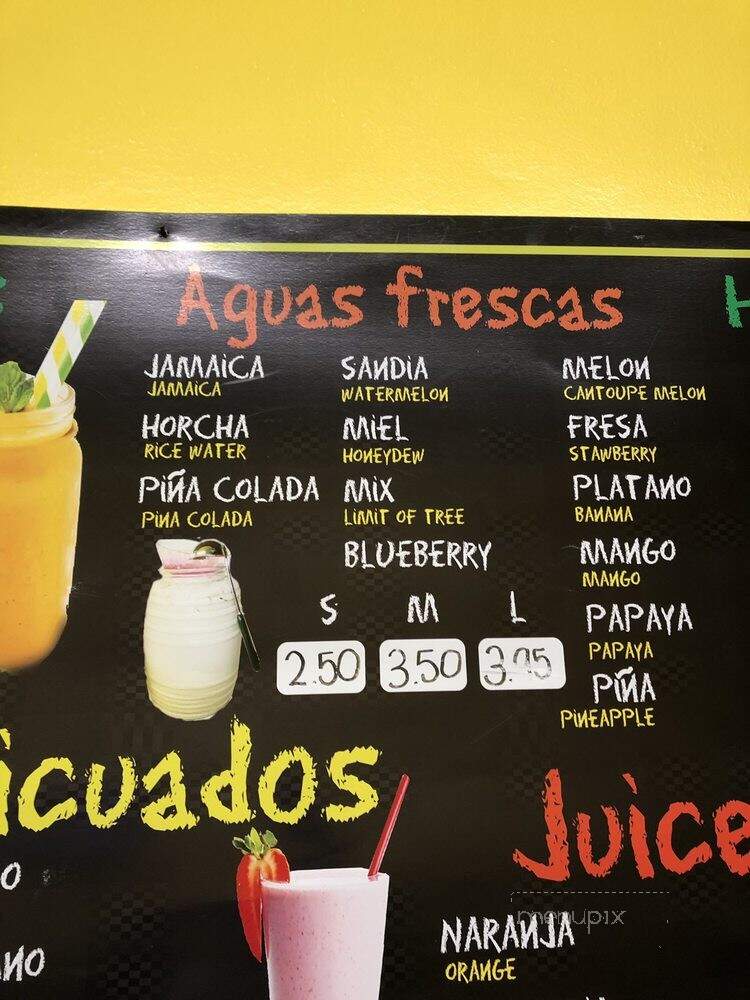 Aguas frescas
JAMAICA
JAMAICA
HORCHA
RICE WATER
PIÑA COLADA
PINA COLADA
SANDIA
WATERMELON
MIEL
HONEYDEW
MIX
LIMIT OF TREE
BLUEBERRY
MELON
CANTOUPE MELON
FRESA
STAWBERRY
PLATANO
BANANA
MANGO
MANGO
PAPAYA
PAPAYA
PIÑA
PINEAPPLE
S M L
2.50 3.50
icuados
O
NO
Juice
NARANJA
ORANGE
menupix